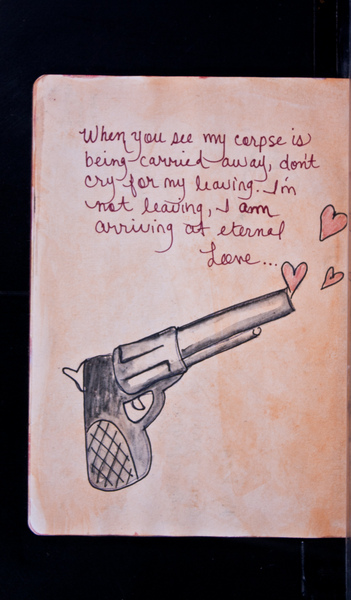 When you see my corpse is
being carried away, don't
cry for my leaving. I'm
not leaving, I am
arriving at eternal
Love...